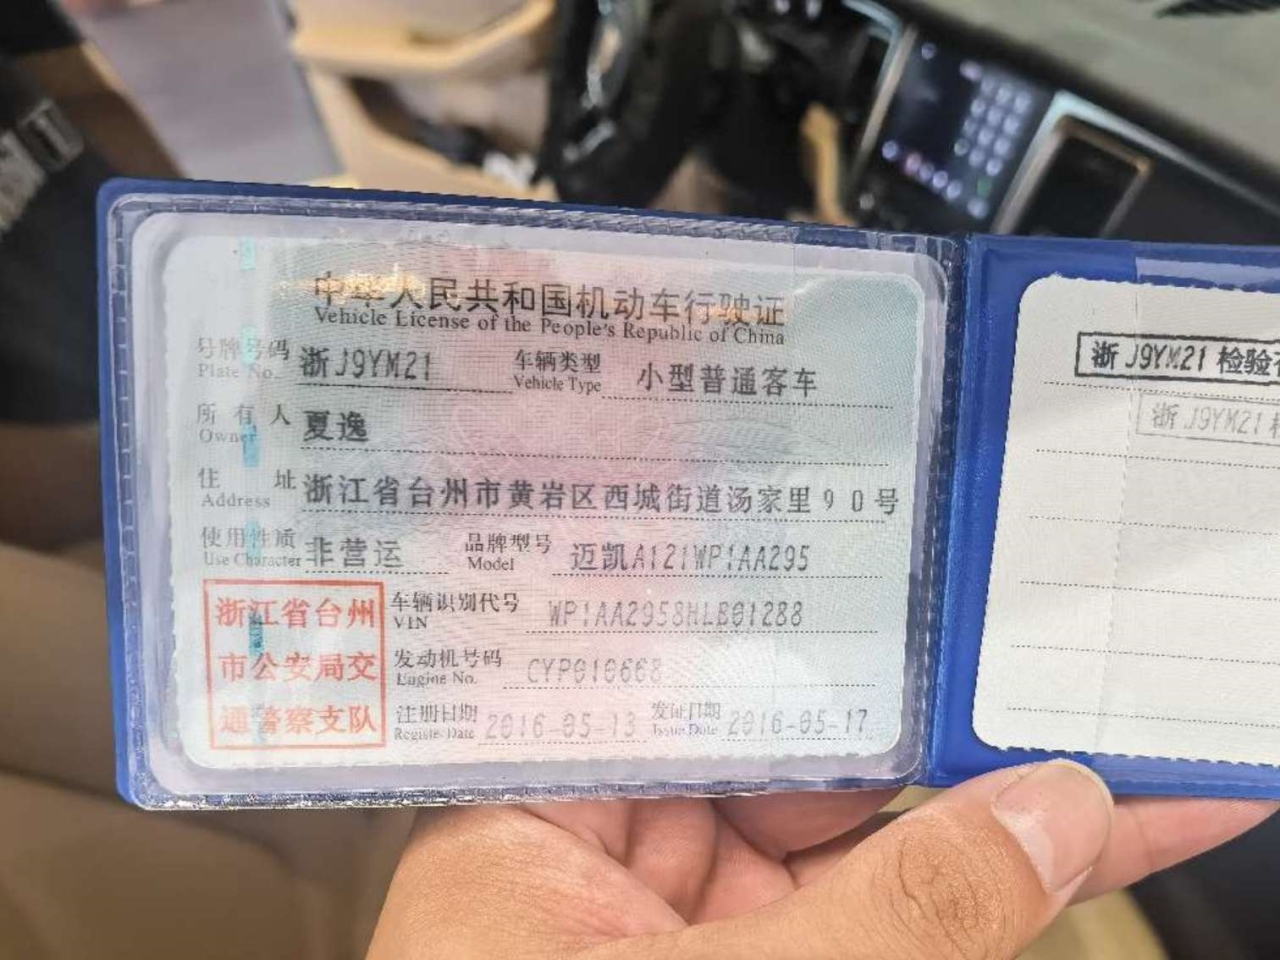 中华人民共和国机动车行驶证
Vehicle License of the People's Republic of China
号牌号码 浙J9YM21 车辆类型 小型普通客车
Plate No. Vehicle Type
所有人 夏逸
Owner
住址 浙江省台州市黄岩区西城街道汤家里90号
Address
使用性质 非营运 品牌型号 迈凯A121WP1AA295
Use Character Model
浙江省台州
市公安局交
通警察支队
车辆识别代号 WP1AA2958HLB01288
VIN
发动机号码 CYP010668
Engine No.
注册日期 2016-05-13 发证日期 2016-05-17
Register Date Issue Date
浙J9YM21 检验
浙J9YM21